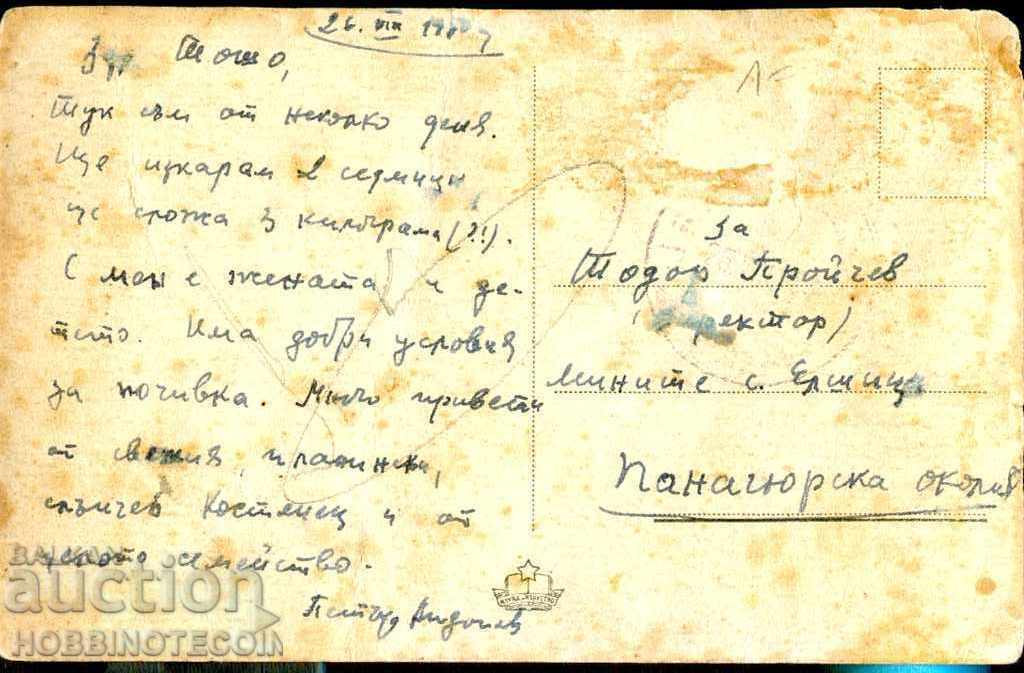 26. VIII
Тошо,
Тук съм от неколко деня.
Ще изкарам 2 седмици
сложа 3 килограма (?!).
С мен е жената и де-
тето. Има добри условия
за почивка. Много привети
от свежия, планински,
слънчев Костенец и от
семейство.
Петър
за
Тодор Пройчев
(директор)
мините с. Елшица
Панагюрска околия
auction
HOBBINOTECOIN